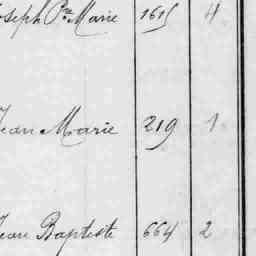 Joseph Pre Marie 1615 4
Jean Marie 219 1
Jean Baptiste 664 2